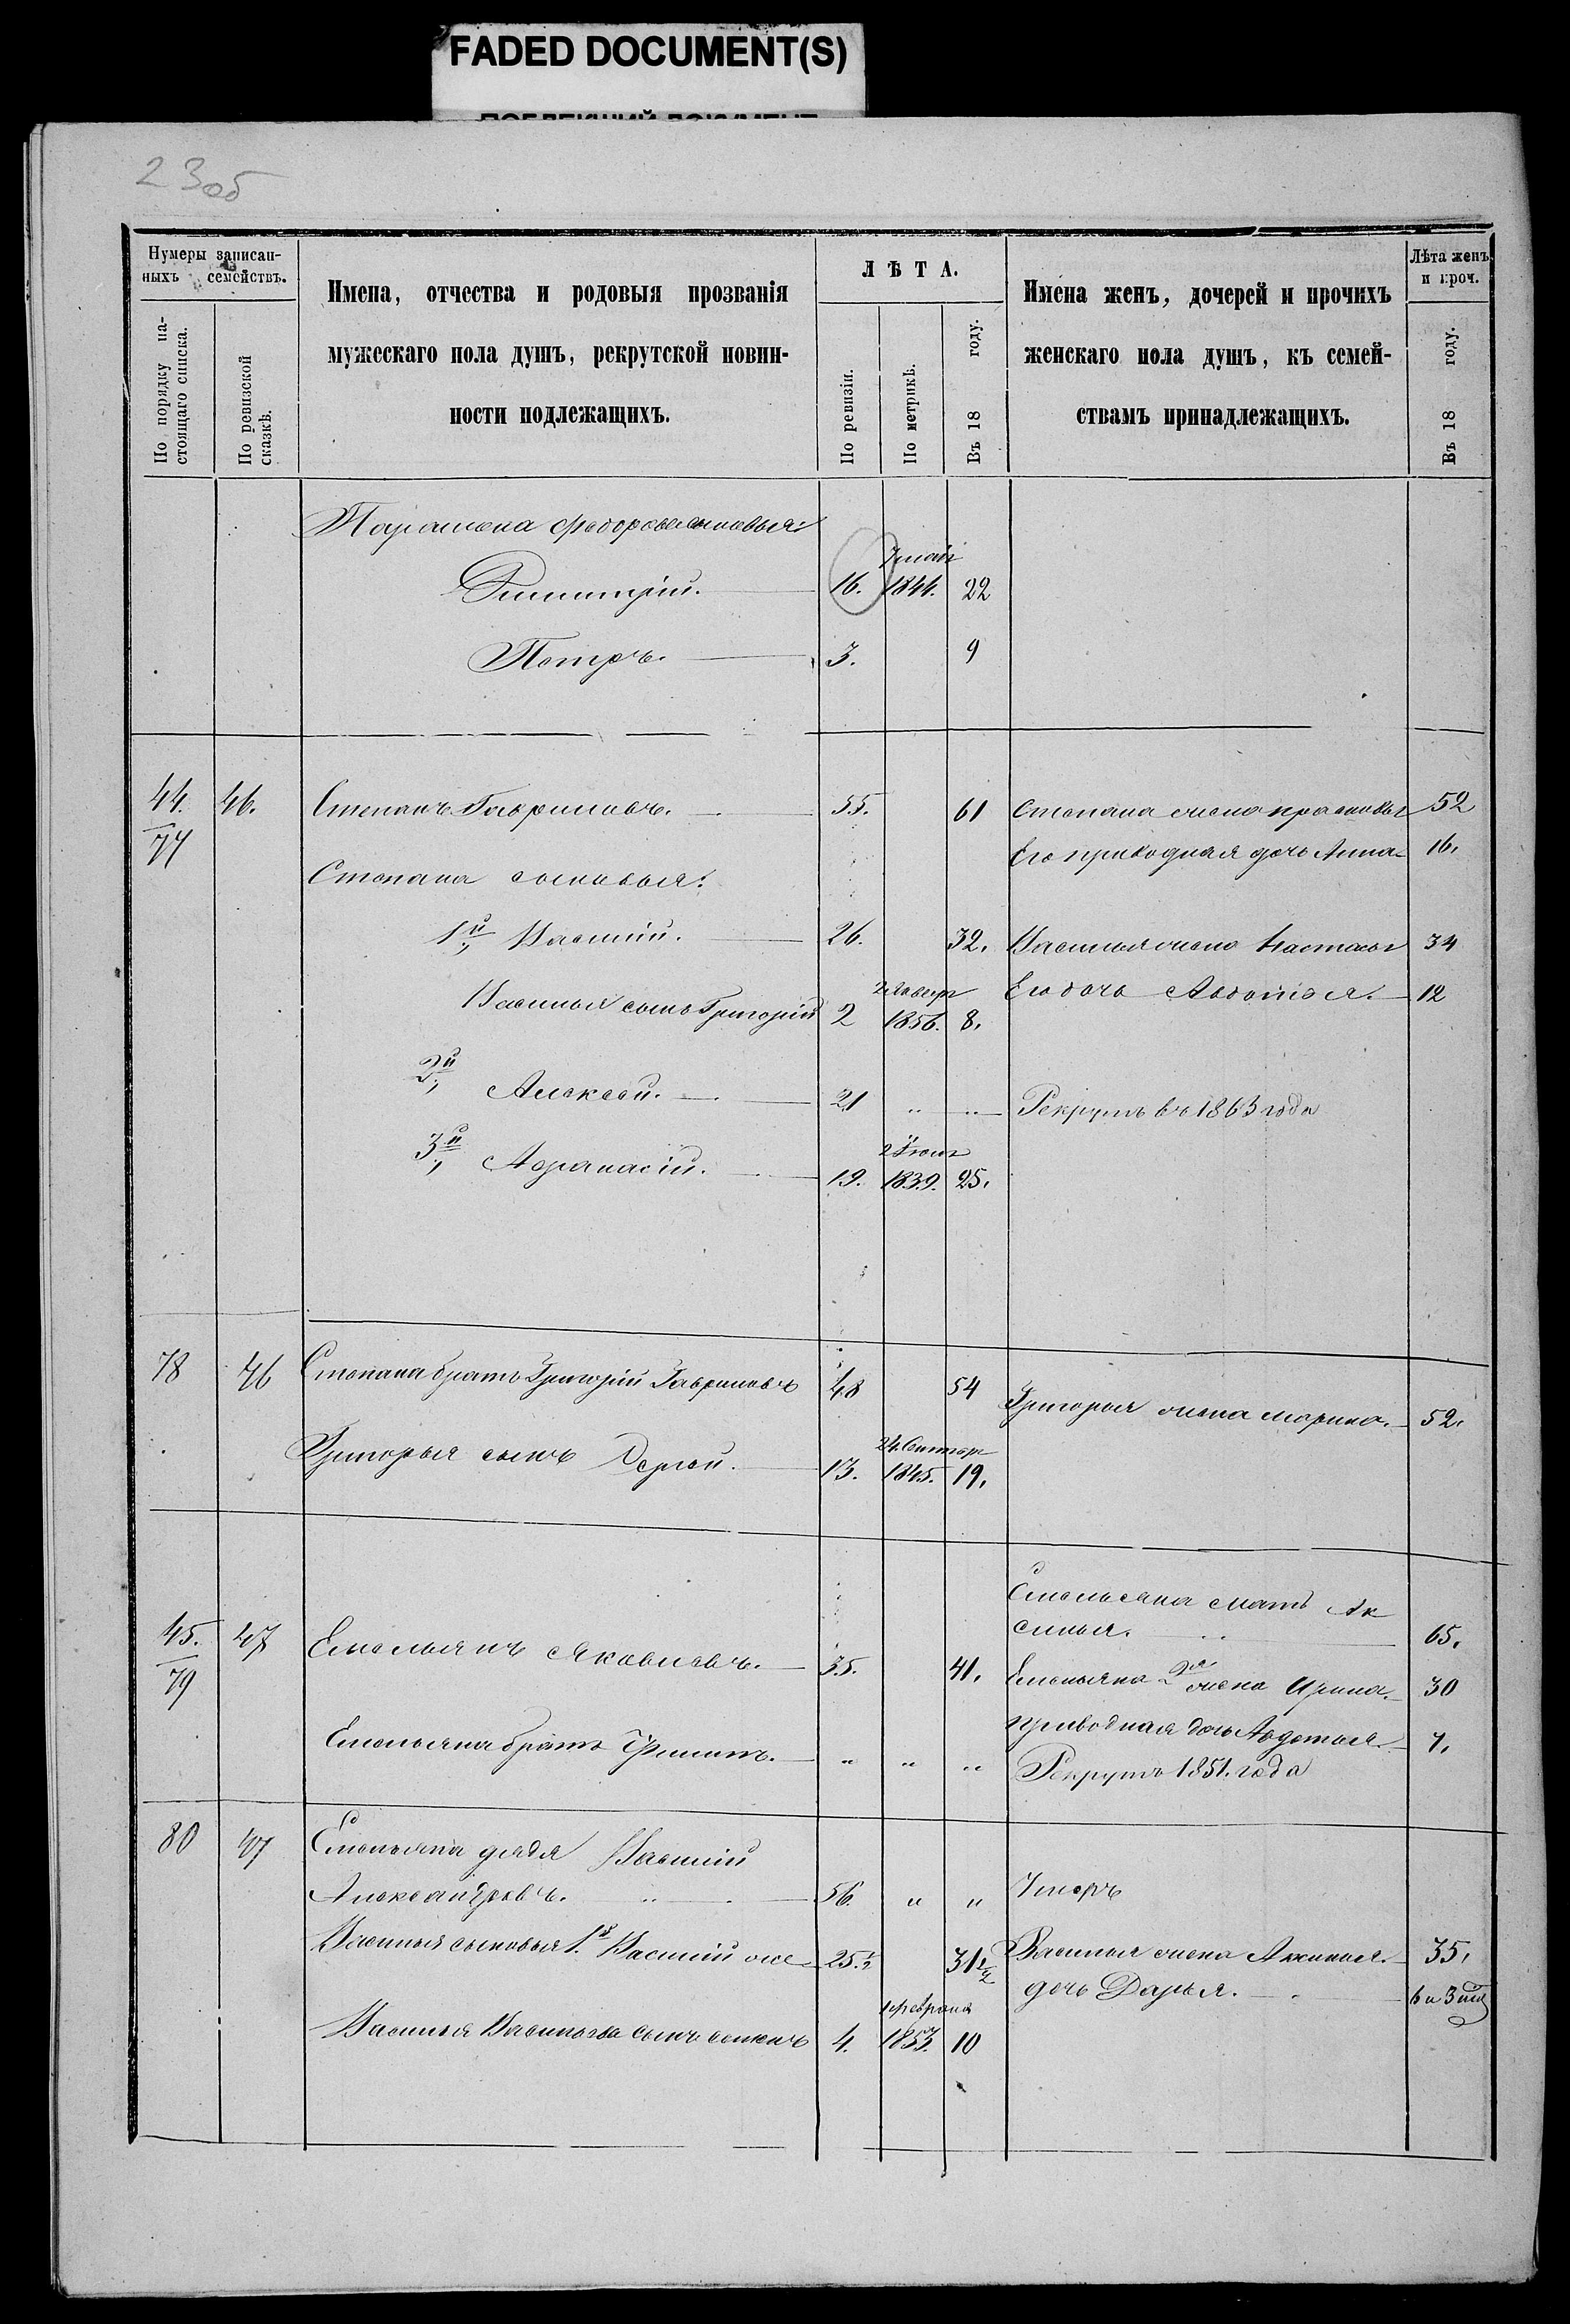 FADED DOCUMENT(S)
23об
Нумеры записан-
ныхъ семействъ.
По порядку на-
стоящаго списка.
По ревизской
сказкѣ.
Имена, отчества и родовыя прозванія
мужескаго пола душъ, рекрутской повин-
ности подлежащихъ.
ЛѢТА.
По ревизіи.
По метрикѣ.
Въ 18 году.
Имена женъ, дочерей и прочихъ
женскаго пола душъ, къ семей-
ствамъ принадлежащихъ.
Лѣта женъ
и проч.
Въ 18 году.
Парамона сыновья:
16. 1844. 22
Петръ. 3. 9
44. 46. Степанъ Гавриловъ. 55. 61 Степана жена Прасковья 52
77 Его приводная дочь Анна 16.
Степана сыновья:
1й Василій. 26. 32. Василья жена Настасья 34
Василья сынъ Григорій 2 2 Января 1856. 8. Его дочь Авдотья. 12
2й Алексей. 21 " " Рекрутъ въ 1863 года
3й Афанасій. 19. 1839. 25.
78 46 Степана братъ Григорій Гавриловъ 48 54 Григорья жена Марина. 52.
Григорья сынъ Сергей. 13. 24. Сентября 1845. 19.
Емельяна мать Ак
синья. 65.
45. 47 Емельянъ Яковлевъ. 35. 41. Емельяна 2я жена Ирина. 30
79 приводная дочь Авдотья. 7.
Емельяна братъ Филипъ. " " " Рекрутъ 1851. года
80 47 Емельяна дядя Василій
Александровъ. 56. " " Умеръ
Василья сыновья 1й Василій же 25.½ 31½ Василья жена Аксинья. 35.
дочь Дарья. 6 и 3 мѣс
Василья Васильева сынъ 4. 1 Февраля 1853. 10